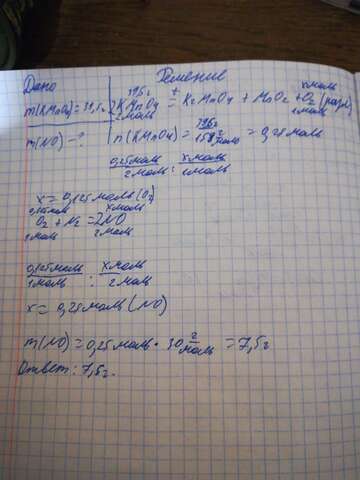 Дано Решение
39,5г xмоль
m(KMnO4)=39,5г 2KMnO4 =t K2MnO4 + MnO2 + O2 (разл)
2моль 1моль
m(NO)-? n(KMnO4) = 39,5г / 158 г/моль = 0,25моль
0,25моль / 2моль : xмоль / 1моль
x = 0,125моль (O2)
0,125моль xмоль
O2 + N2 = 2NO
1моль 2моль
0,125моль / 1моль : xмоль / 2моль
x = 0,25моль (NO)
m(NO) = 0,25моль · 30 г/моль = 7,5г
Ответ: 7,5г.